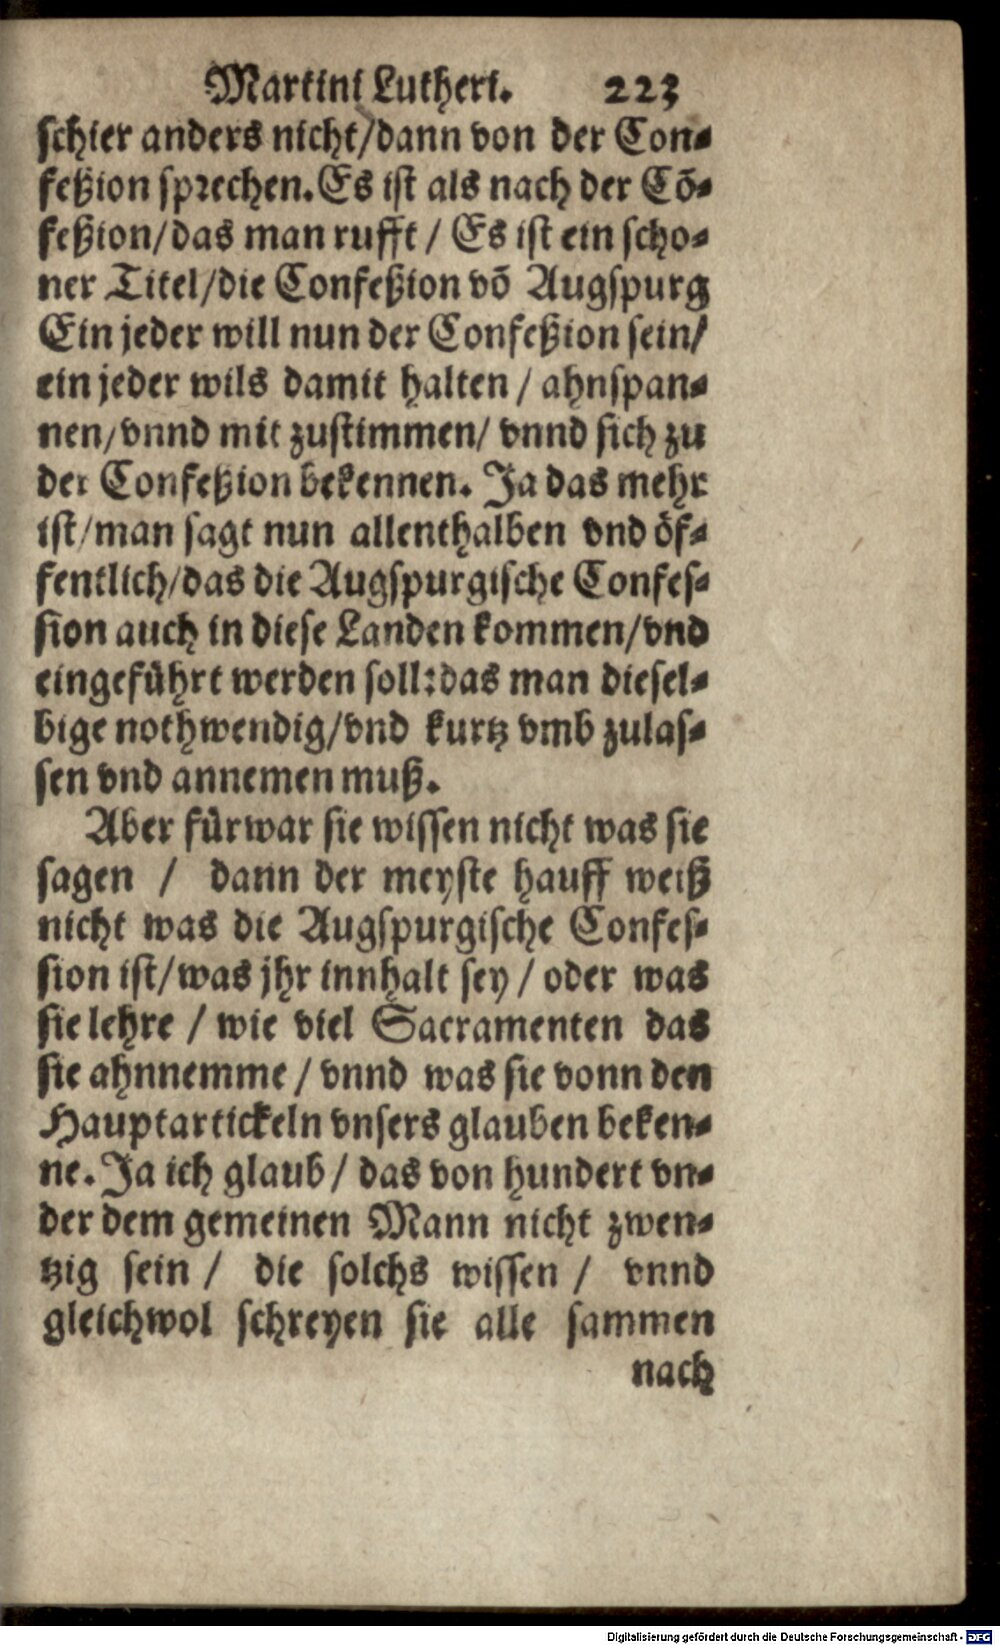 Martini Lutheri. 223
schier anders nicht/dann von der Con⸗
feßion sprechen. Es ist als nach der Cō⸗
feßion/das man rufft / Es ist ein scho⸗
ner Titel/die Confeßion vō Augspurg
Ein jeder will nun der Confeßion sein/
ein jeder wils damit halten / ahnspan⸗
nen/vnnd mit zustimmen/ vnnd sich zu
der Confeßion bekennen. Ja das mehr
ist/man sagt nun allenthalben vnd öf⸗
fentlich/das die Augspurgische Confes⸗
sion auch in diese Landen kommen/vnd
eingeführt werden soll:das man diesel⸗
bige nothwendig/vnd kurtz vmb zulas⸗
sen vnd annemen muß.
Aber fürwar sie wissen nicht was sie
sagen / dann der meyste hauff weiß
nicht was die Augspurgische Confes⸗
sion ist/was jhr innhalt sey / oder was
sie lehre / wie viel Sacramenten das
sie ahnnemme / vnnd was sie vonn den
Hauptartickeln vnsers glauben beken⸗
ne. Ja ich glaub / das von hundert vn⸗
der dem gemeinen Mann nicht zwen⸗
tzig sein / die solchs wissen / vnnd
gleichwol schreyen sie alle sammen
nach
Digitalisierung gefördert durch die Deutsche Forschungsgemeinschaft - DFG